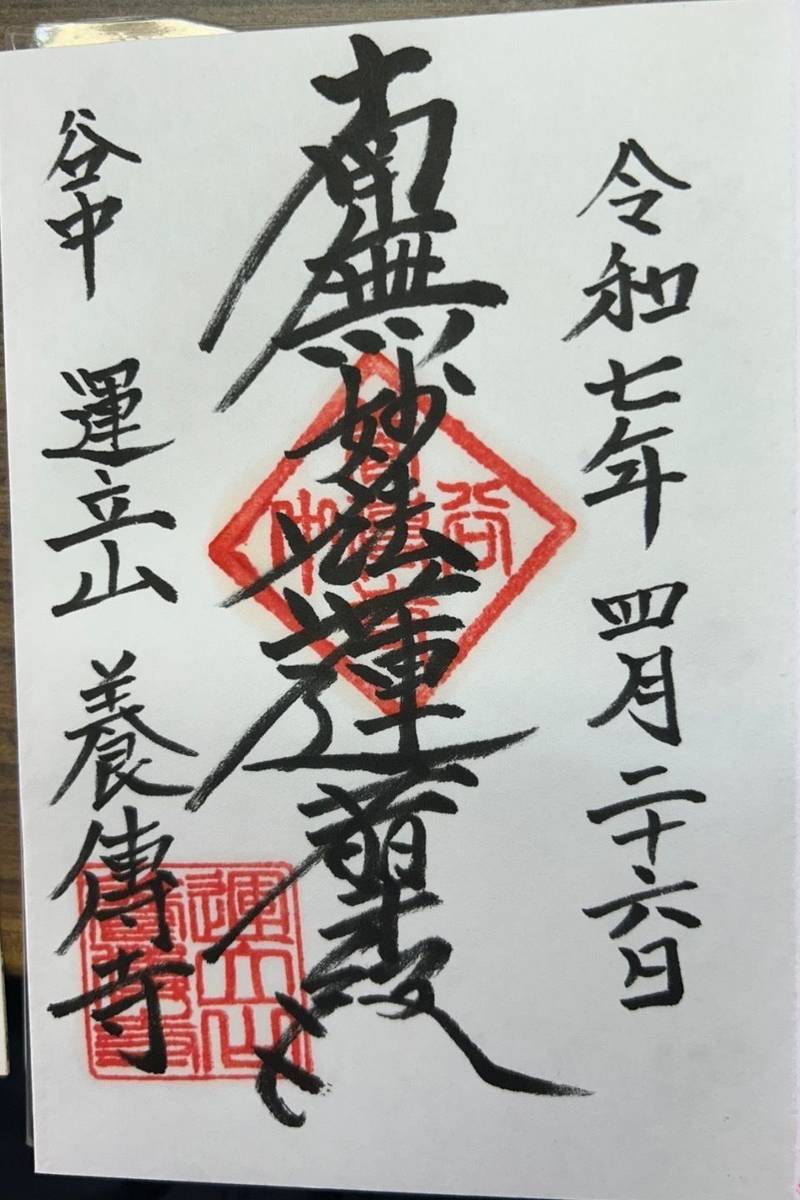 令和七年 四月 二十六日
南無妙法蓮華経
谷中 運立山 養傳寺
谷
中
運立山